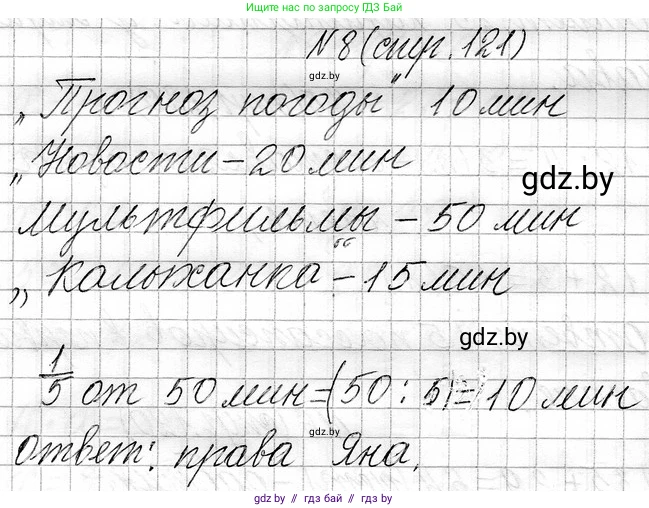 Пришли свое решение в Телеграм ГДЗ Бай
№8 (стр. 121)
gdz.by
„Прогноз погоды" 10 мин
„Новости – 20 мин
gdz.by
Мультфильмы – 50 мин
„Калыханка" – 15 мин
gdz.by
1/5 от 50 мин = (50 : 5) = 10 мин
gdz.by
ответ: права Яна.
gdz.by // гдз бай // гдз.by